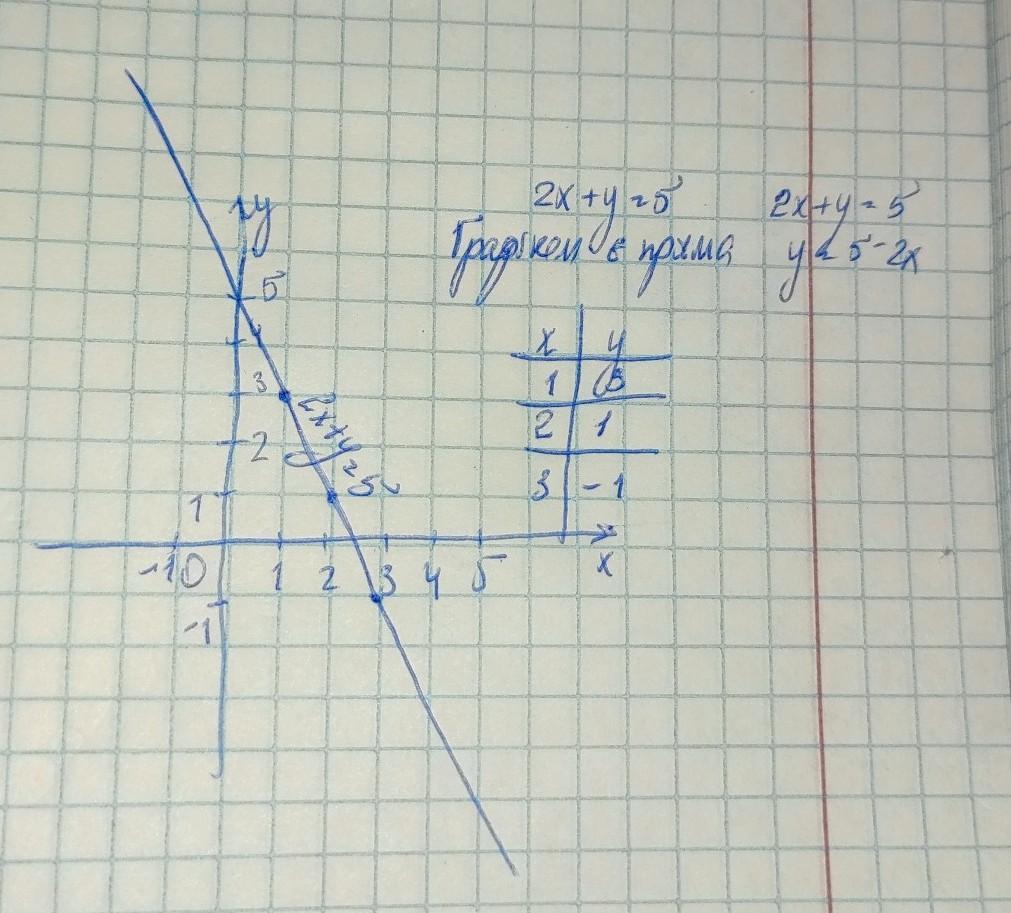 2x+y=5
2x+y=5
Графіком є пряма
y=5-2x
y
5
4
3
2
1
2x+y=5
x y
1 3
2 1
3 -1
-1 0 1 2 3 4 5 x
-1